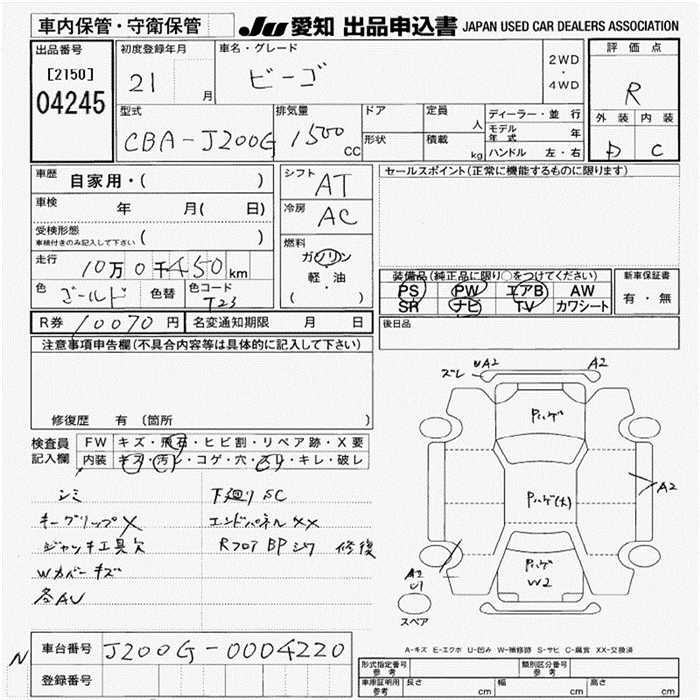 車内保管・守衛保管
JU 愛知 出品申込書 JAPAN USED CAR DEALERS ASSOCIATION
出品番号
[2150]
04245
初度登録年月
21 月
車名・グレード
ビーゴ
2WD
・
4WD
評価点
R
外装 内装
D C
型式
CBA-J200G
排気量
1500 cc
ドア
形状
定員 人
積載 kg
ディーラー・並行
モデル年式 年
ハンドル 左・右
車歴 自家用・( )
車検 年 月( 日)
受検形態
車検付きのみ記入して下さい ( )
走行 10万0千450km
色 ゴールド 色替 色コード T23
シフト AT
冷房 AC
燃料
ガソリン
軽・油
( )
R券 10070円 名変通知期限 月 日
セールスポイント(正常に機能するものに限ります)
装備品(純正品に限り○をつけてください)
PS PW エアB AW
SR ナビ TV カワシート
新車保証書
有・無
後日品
注意事項申告欄(不具合内容等は具体的に記入して下さい)
修復歴 有 (箇所 )
検査員記入欄
FW キズ・飛石・ヒビ割・リペア跡・X要
内装 キズ・汚レ・コゲ・穴・スレ・キレ・破レ
シミ
キーグリップX
ジャッキ工具欠
Wカバーキズ
各AU
下廻りSC
エンドパネルXX
RフロアBPシワ 修復
ズレ UA2
A2
Pハゲ
Pハゲ(大)
A2
Pハゲ
W2
A2
U1
スペア
A-キズ E-エクボ U-凹み W-補修跡 S-サビ C-腐食 XX-交換済
N
車台番号 J200G-0004220
登録番号
形式指定番号
参考
類別区分番号
参考
車庫証明用
参考
長さ cm
幅 cm
高さ cm